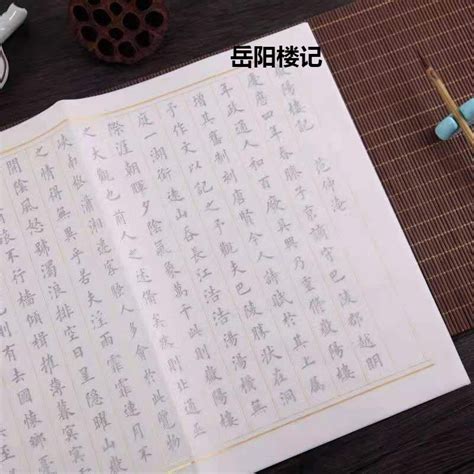 岳阳楼记
嶽陽樓記 范仲淹
慶曆四年春滕子京謫守巴陵郡越明
年政通人和百廢具興乃重脩嶽陽樓
增其舊制刻唐賢今人詩賦於其上屬
予作文以記之予觀夫巴陵勝狀在洞
庭一湖銜遠山吞長江浩浩湯湯橫無
際涯朝暉夕陰氣象萬千此則嶽陽樓
之大觀也前人之述備矣然則北通巫
峽南極瀟湘遷客騷人多會於此覽物
之情得無異乎若夫淫雨霏霏連月不
開陰風怒號濁浪排空日星隱曜山
旅不行檣傾楫摧薄暮冥冥
去國懷鄉